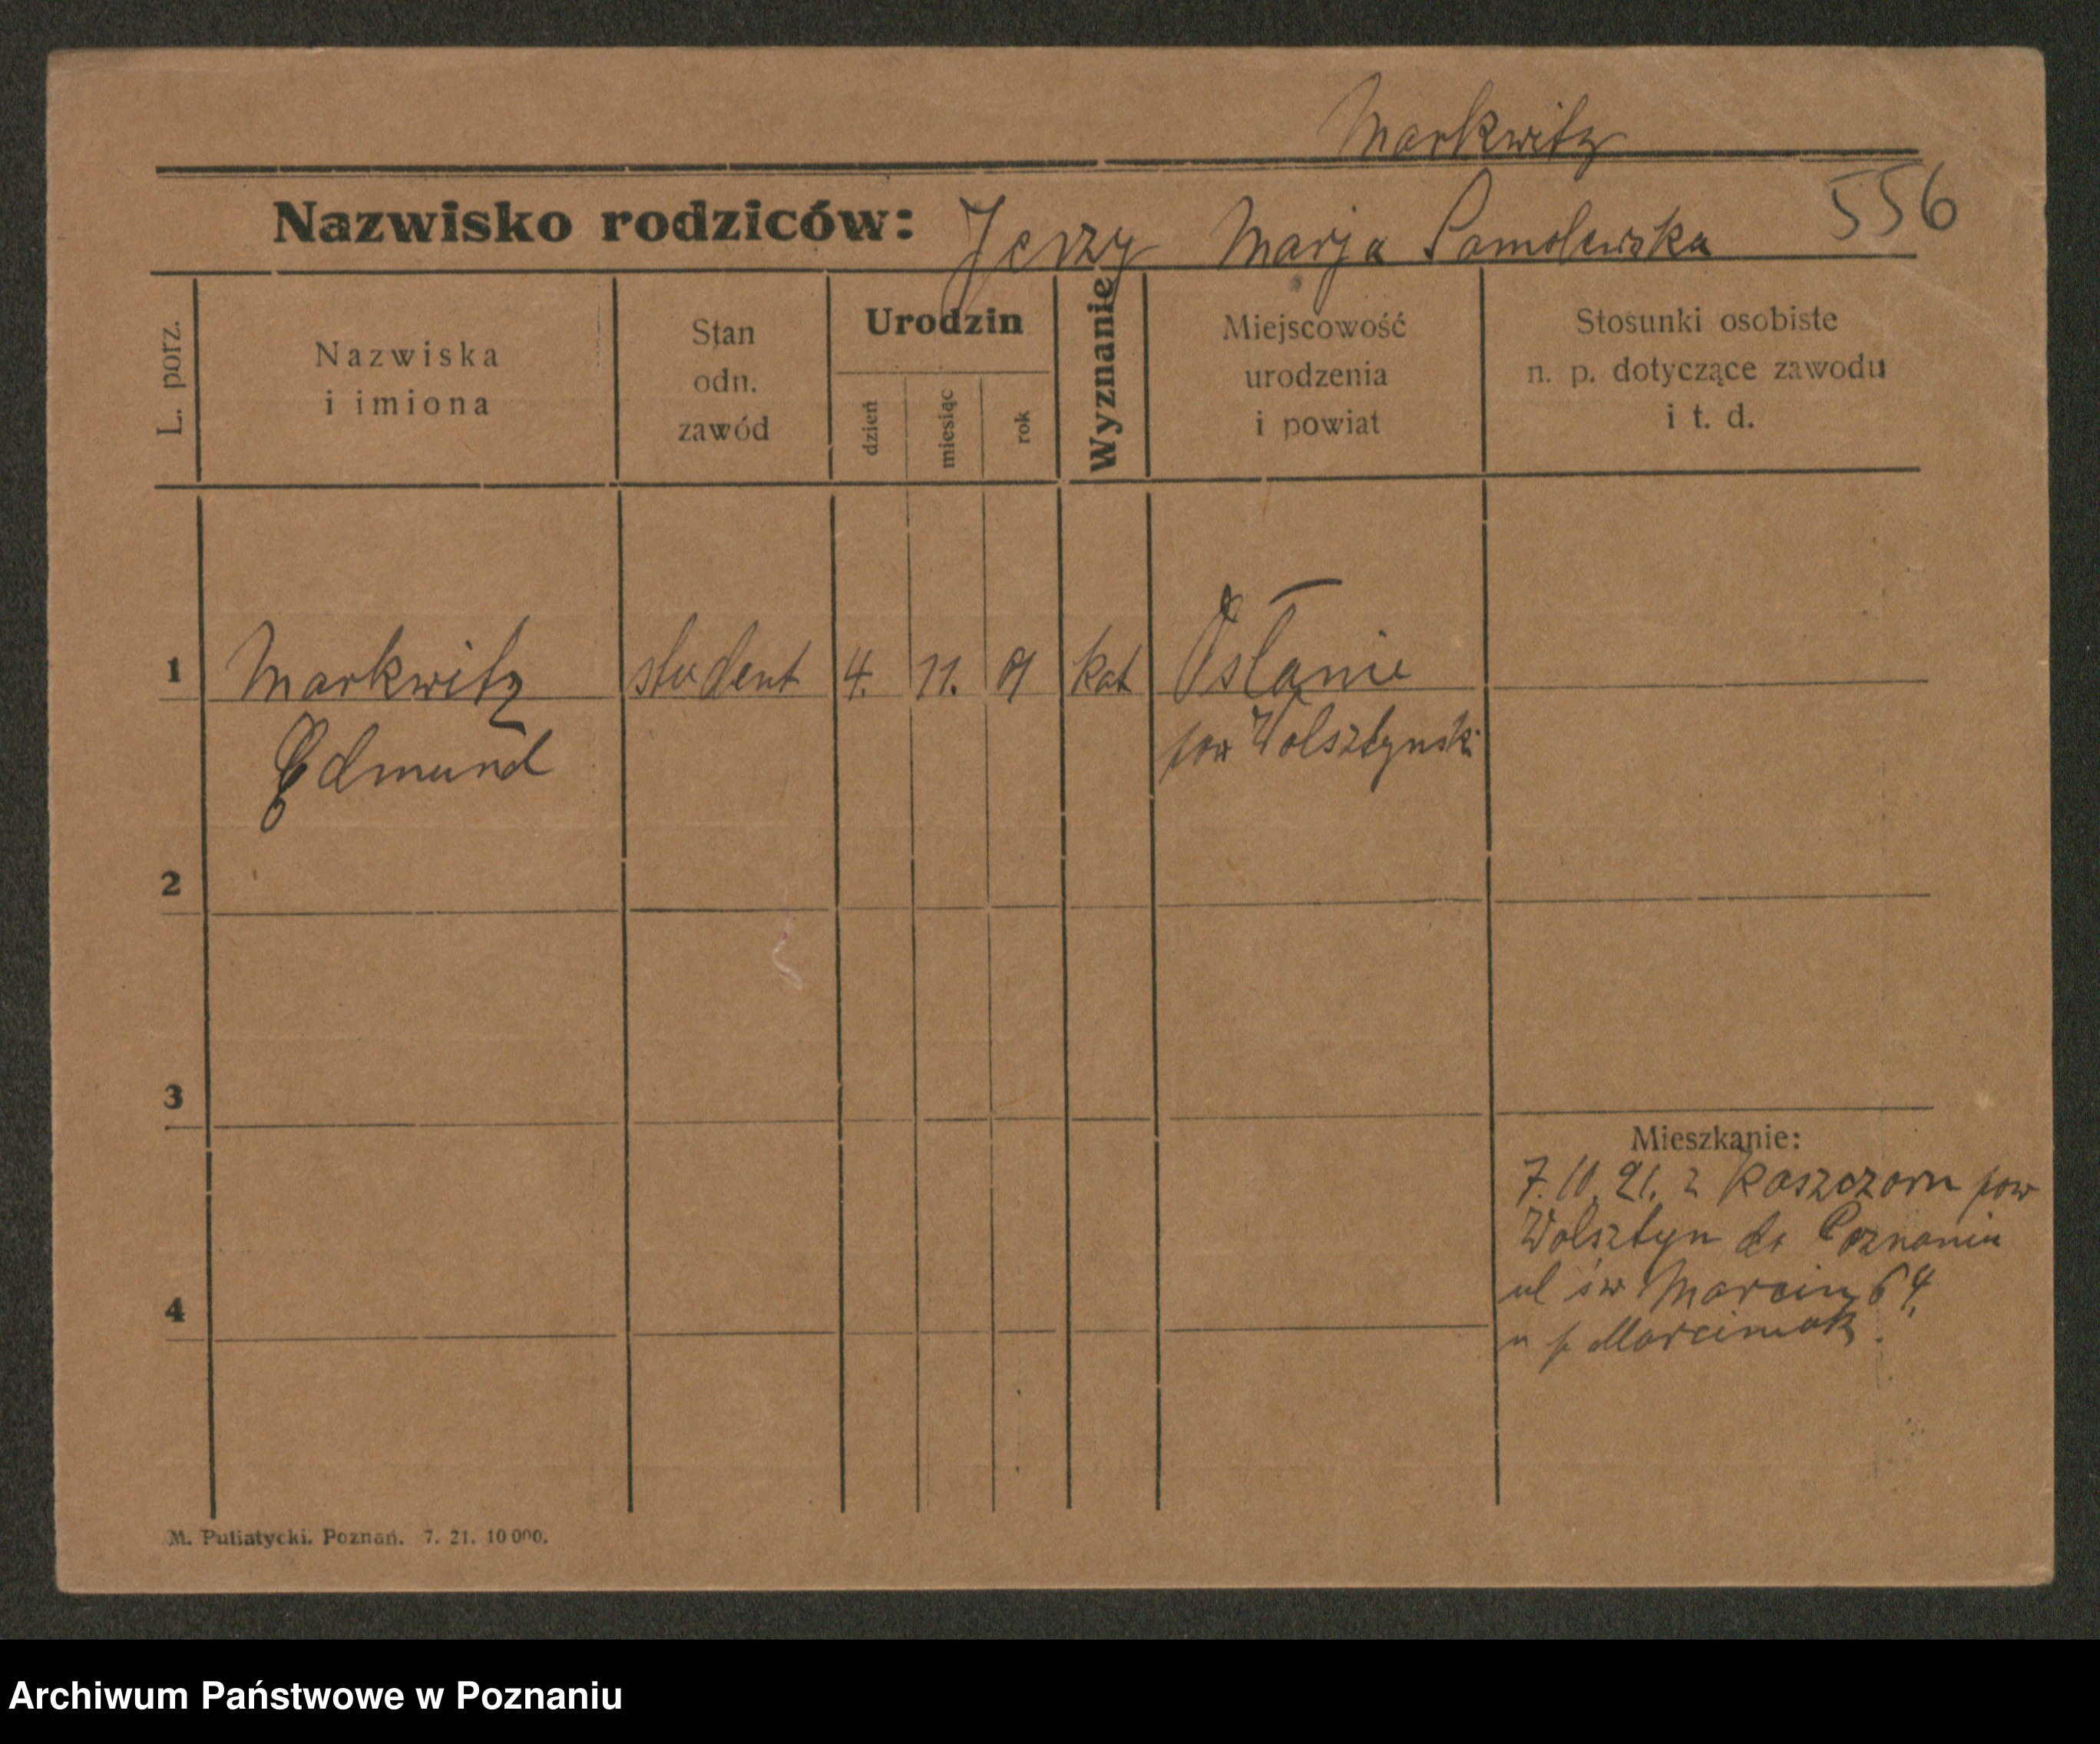 Markwitz
Nazwisko rodziców: Jerzy Marja Samolewska
556
L. porz.
Nazwiska
i imiona
Stan
odn.
zawód
Urodzin
dzień
miesiąc
rok
Wyznanie
Miejscowość
urodzenia
i powiat
Stosunki osobiste
n. p. dotyczące zawodu
i t. d.
1 Markwitz student 4. 11. kat Osłanie
Edmund pow Wolsztynski
2
3
Mieszkanie:
7.10.21. z Kaszczoru pow
Wolsztyn do Poznania
4
ul św Marcin 64.
u p Marciniak.
M. Putiatycki. Poznań. 7. 21. 10 000.
Archiwum Państwowe w Poznaniu